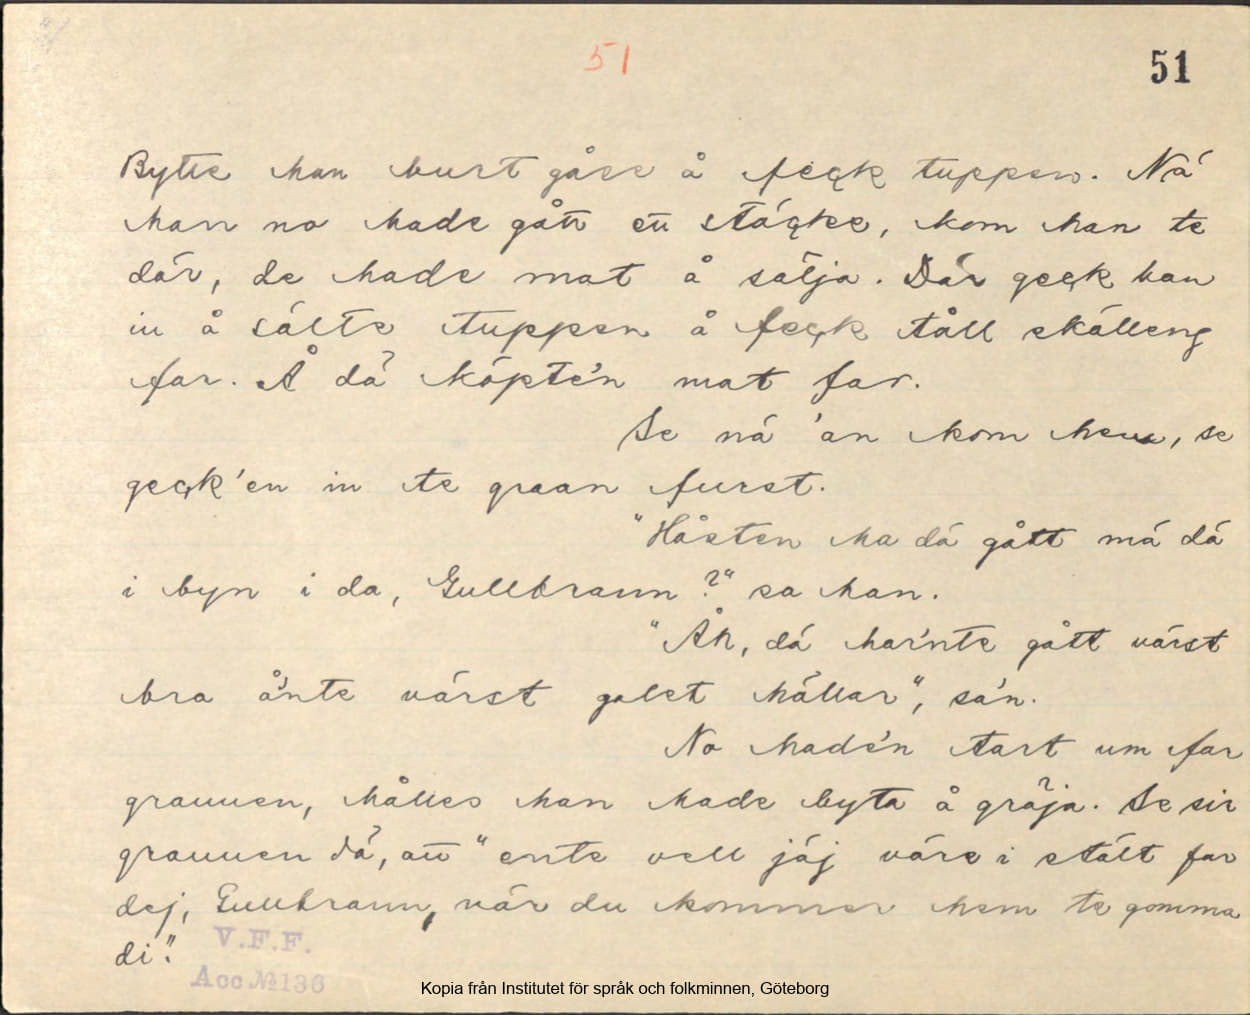 51
51
Bytte han burt gåse å feçk tuppen. Ná
han no hade gått ett stáçke, kom han te
där, de hade mat å sälja. Där geçk han
in å sálte tuppen å feçk tåll skálleng
far. Å dá köpte'n mat far.
Se ná 'an kom hem, se
geçk'en in te graan furst.
"Håsten ha dá gått má dá
i byn i da, Gullbrann?" sa han.
"Åh, dá har'nte gått várst
bra å'nte várst galet hállar", sa'n.
No hade'n tart um far
grannen, hålles han hade byta å gräja. Se sir
grannen dá, att "ente vell jáj váre i stált far
dej, Gullbrann, när du kommer hem te gomma
di."
V.F.F.
Acc № 136
Kopia från Institutet för språk och folkminnen, Göteborg